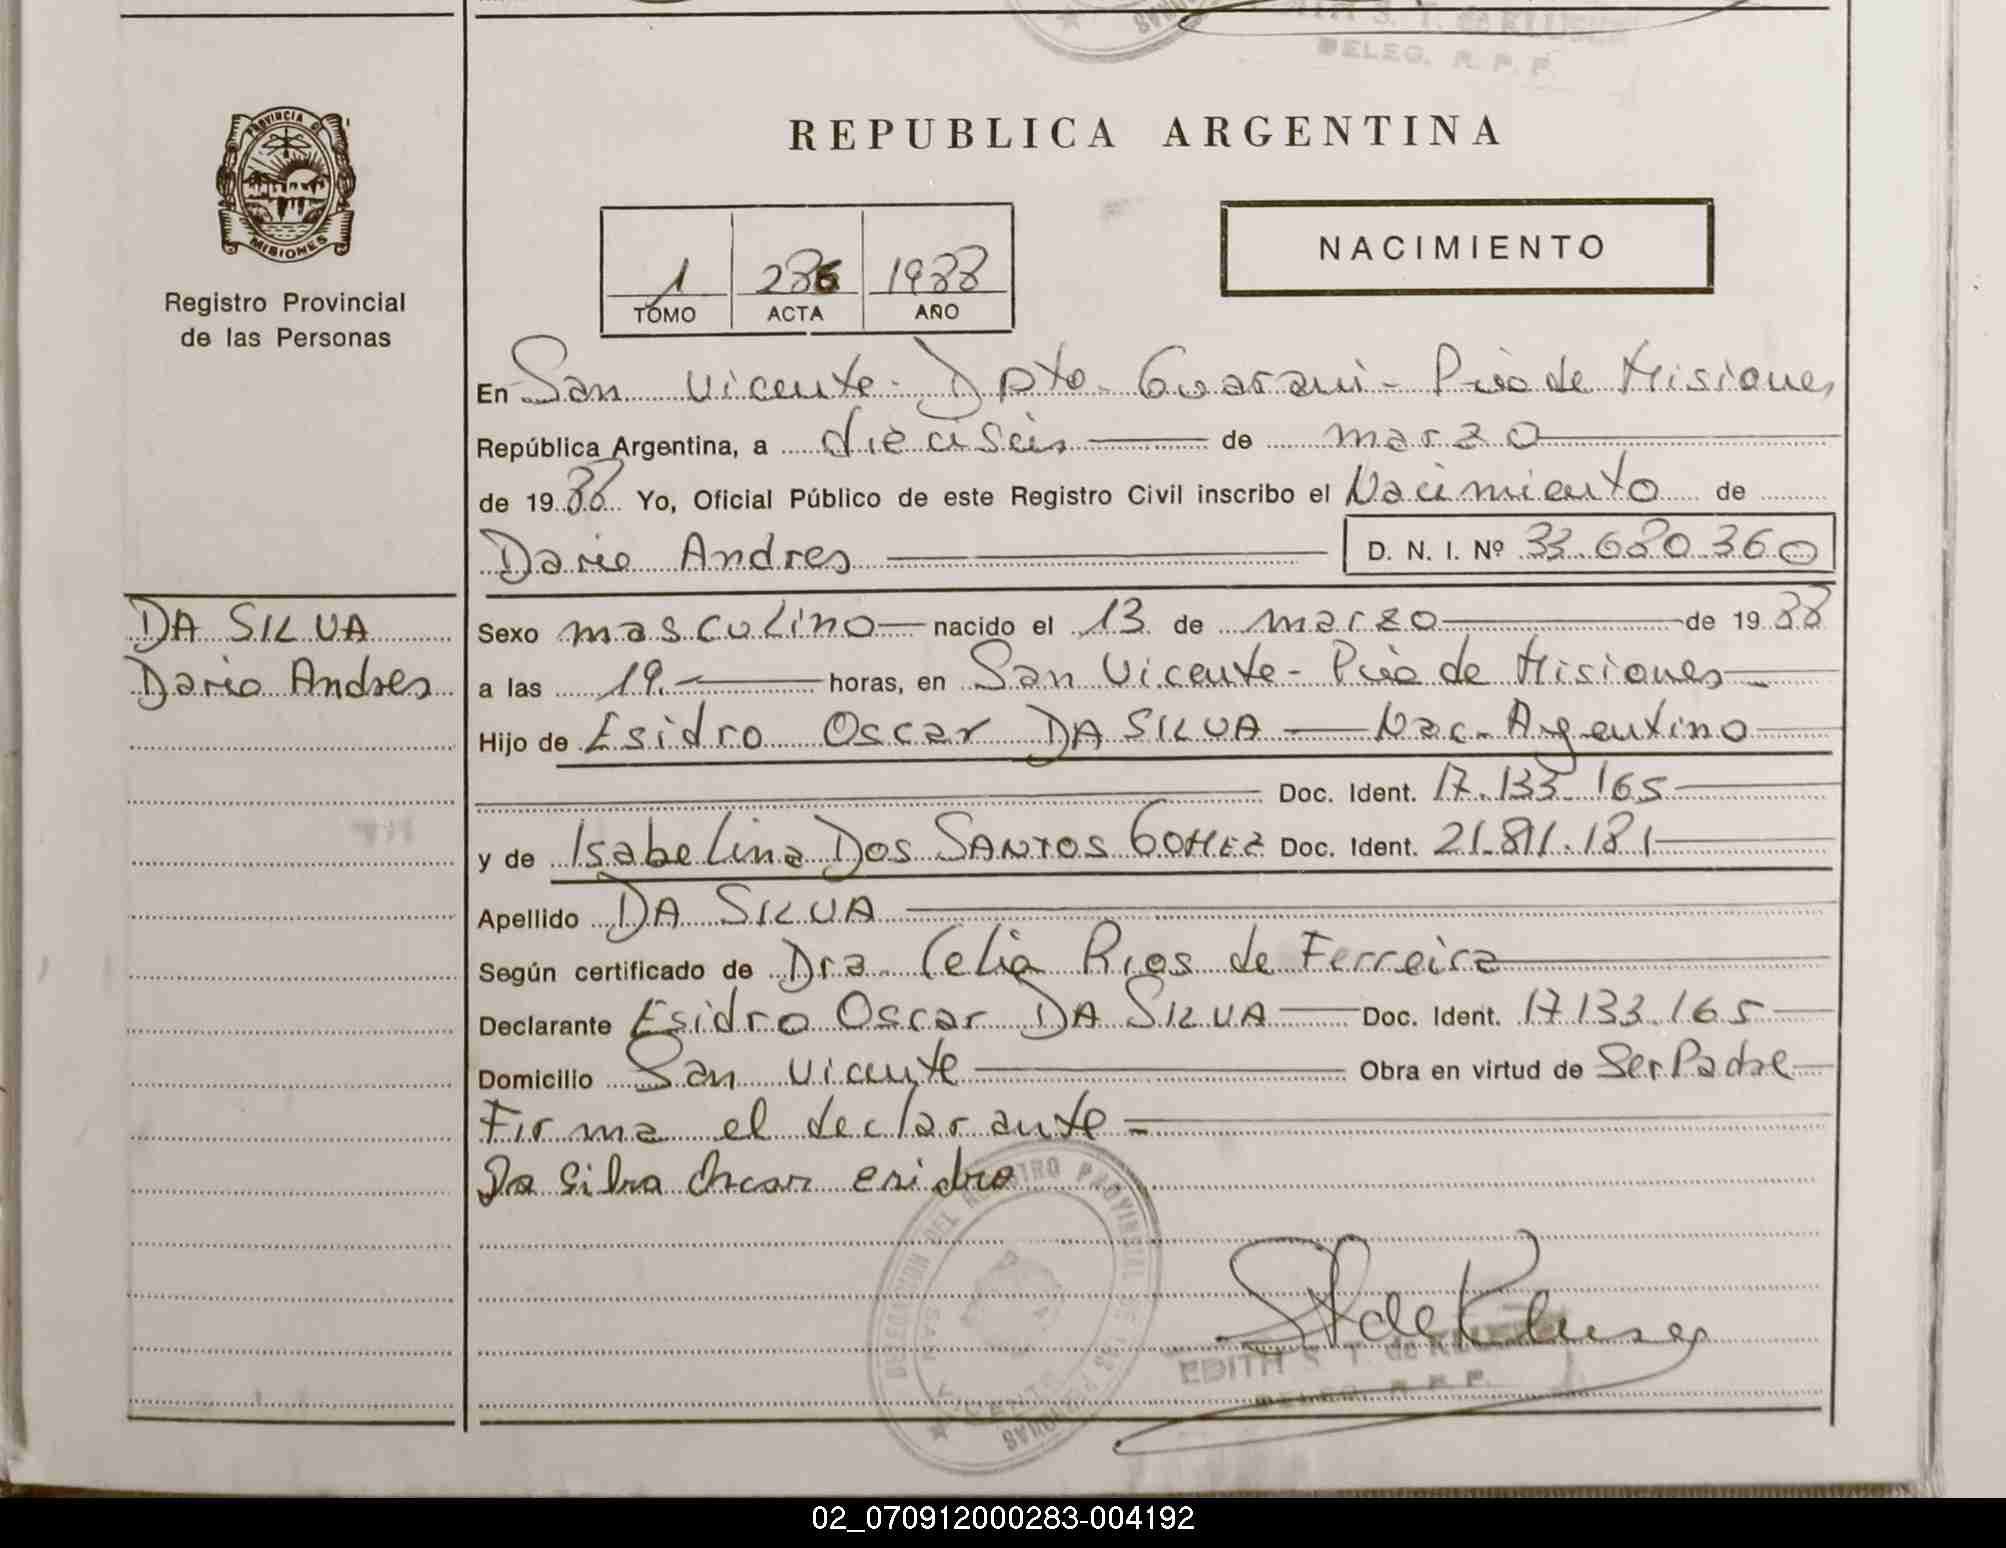 DELEG. R. P. P.
PROVINCIA DE
MISIONES
Registro Provincial
de las Personas
REPUBLICA ARGENTINA
NACIMIENTO
1 286 1988
TOMO ACTA AÑO
En San Vicente - Dpto. Guarani - Pcia de Misiones
República Argentina, a dieciseis de marzo
de 1988 Yo, Oficial Público de este Registro Civil inscribo el Nacimiento de
Dario Andres D. N. I. Nº 33.680.360
DA SILVA
Dario Andres
Sexo masculino nacido el 13 de marzo de 1988
a las 19.- horas, en San Vicente - Pcia de Misiones
Hijo de Esidro Oscar DA SILVA - Nac. Argentino
Doc. Ident. 17.133.165
y de Isabelina DOS SANTOS GOMEZ Doc. Ident. 21.811.181
Apellido DA SILVA
Según certificado de Dra. Celia Rios de Ferreira
Declarante Esidro Oscar DA SILVA Doc. Ident. 17.133.165
Domicilio San Vicente Obra en virtud de Ser Padre
Firma el declarante -
Da Silva Oscar esidro
REGISTRO PROVINCIAL DE LAS PERSONAS
SAN VICENTE
EDITH S. T. de
DELEG. R. P. P.
02_070912000283-004192